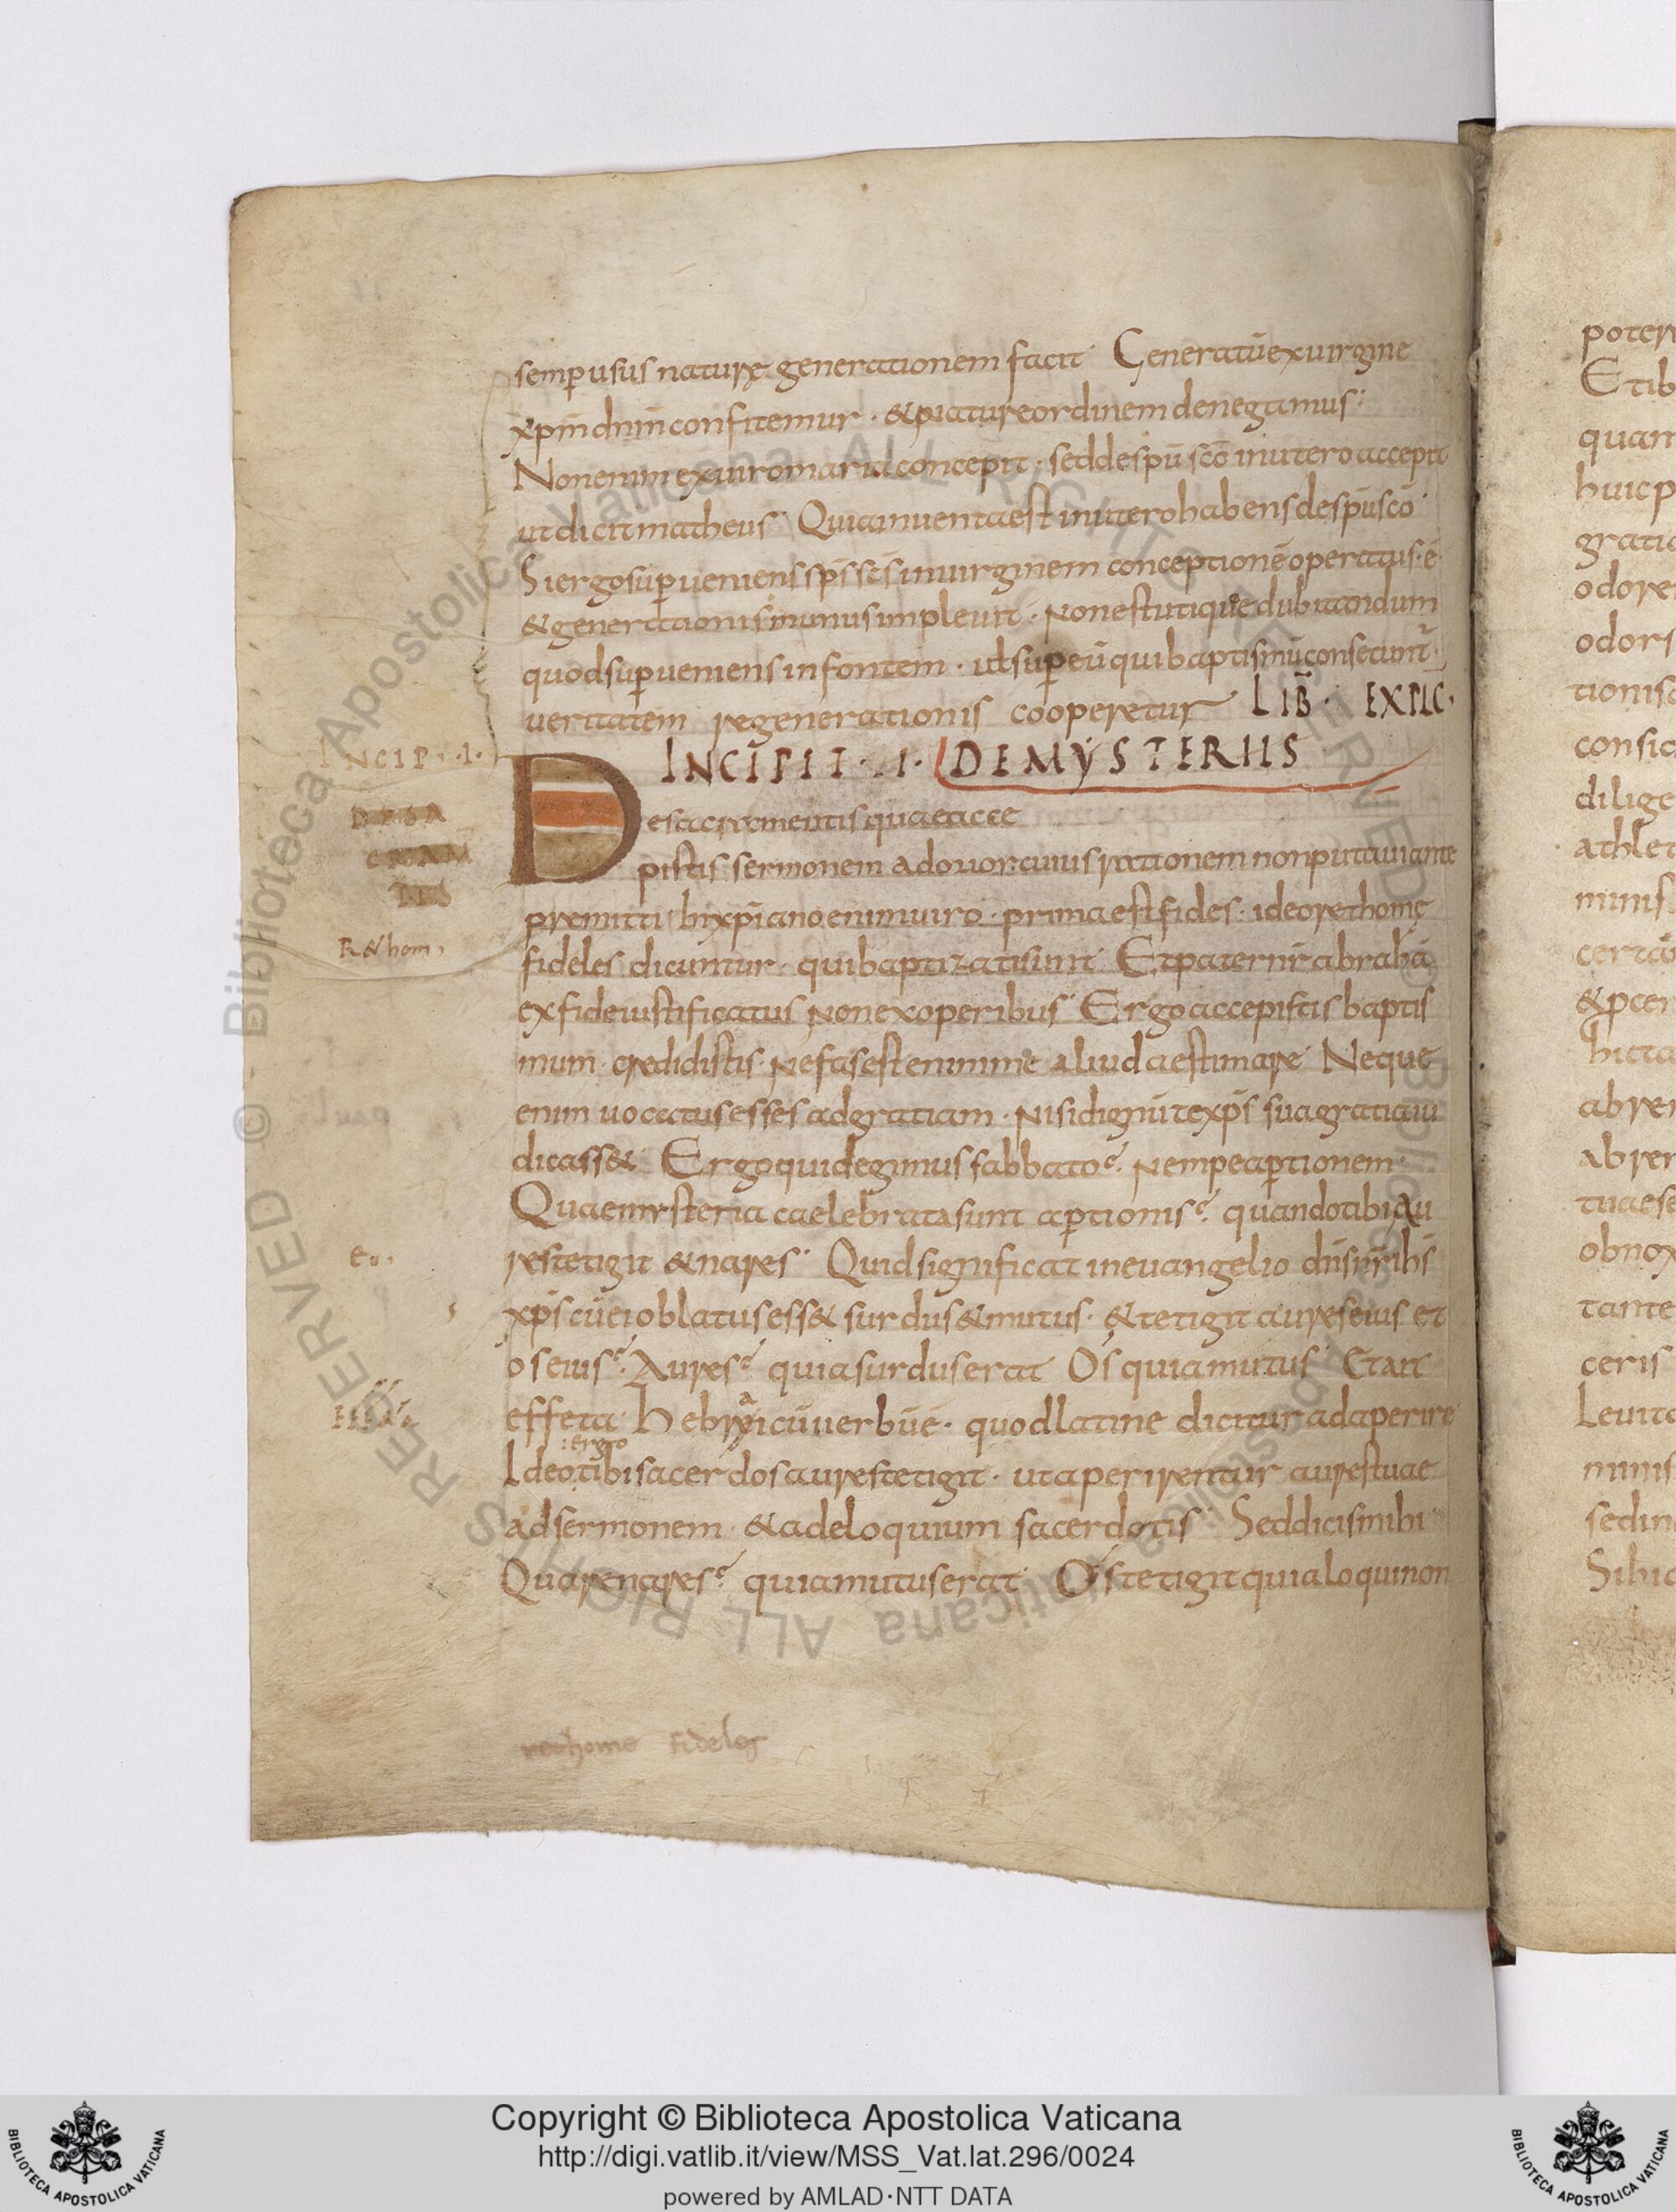 semp usus naturę generationem facit Generatū ex uirgine
xpm dnm confitemur · & naturę ordinem denegamus
Non enim ex uiro maria concepit · sed de spū scō in utero accepit
ut dicit matheus Quia inuenta est in utero habens de spū scō
Si ergo sup ueniens sps scs in uirginem conceptionē operatus · ē
& generationis munus impleuit · Non est utique dubitandum
quod sup ueniens in fontem · uel super eū qui baptismū consecunt
ueritatem regenerationis cooperetur LIB · EXPLC ·
INCIPIT · I · DE MYSTERIIS
INCIP · I ·
DE SA
CRAM
TIS
De sacramentis quae acce
pistis sermonem adorior cuius rationem non putaui ante
premitti In xpiano enim uiro · prima est fides · ideo rethomę
R& hom ·
fideles dicuntur · qui baptizati sunt Et pater nr abrahā
ex fide iustificatus non ex operibus Ergo accepistis baptis
mum · credidistis · Nefas est enim me aliud aestimare Neque
enim uocatus esses ad gratiam · Nisi dignū te xps sua gratia iu
dicass& Ergo quid egimus sabbato Nempe aptionem
Quae mysteria caelebrata sunt aptionis quando tibi au
res tetigit & nares Quid significat in euangelio dns nr ihs
xps cū ei oblatus ess& surdus & mutus · & tetigit aures eius et
os eius Aures quia surdus erat Os quia mutus Et ait
effeta Hebraicū uerbū ē · quod latine dicitur adaperire
ergo
Ideo tibi sacerdos aures tetigit · ut aperirentur aures tuae
ad sermonem · & adeloquium sacerdotis Sed dicis mihi
Quare nares quia mutus erat Os tetigit quia loqui non
rethome fideles
poter
Etib
quan
huic p
gratia
odore
odoris
tionis
consic
dilige
athlet
minis
certā
& pcer
hicta
abren
abren
tuaese
obnox
tante
ceris
Leuita
minis
sed in
Si hic
Copyright © Biblioteca Apostolica Vaticana
http://digi.vatlib.it/view/MSS_Vat.lat.296/0024
powered by AMLAD·NTT DATA
BIBLIOTECA APOSTOLICA VATICANA
BIBLIOTECA APOSTOLICA VATICANA